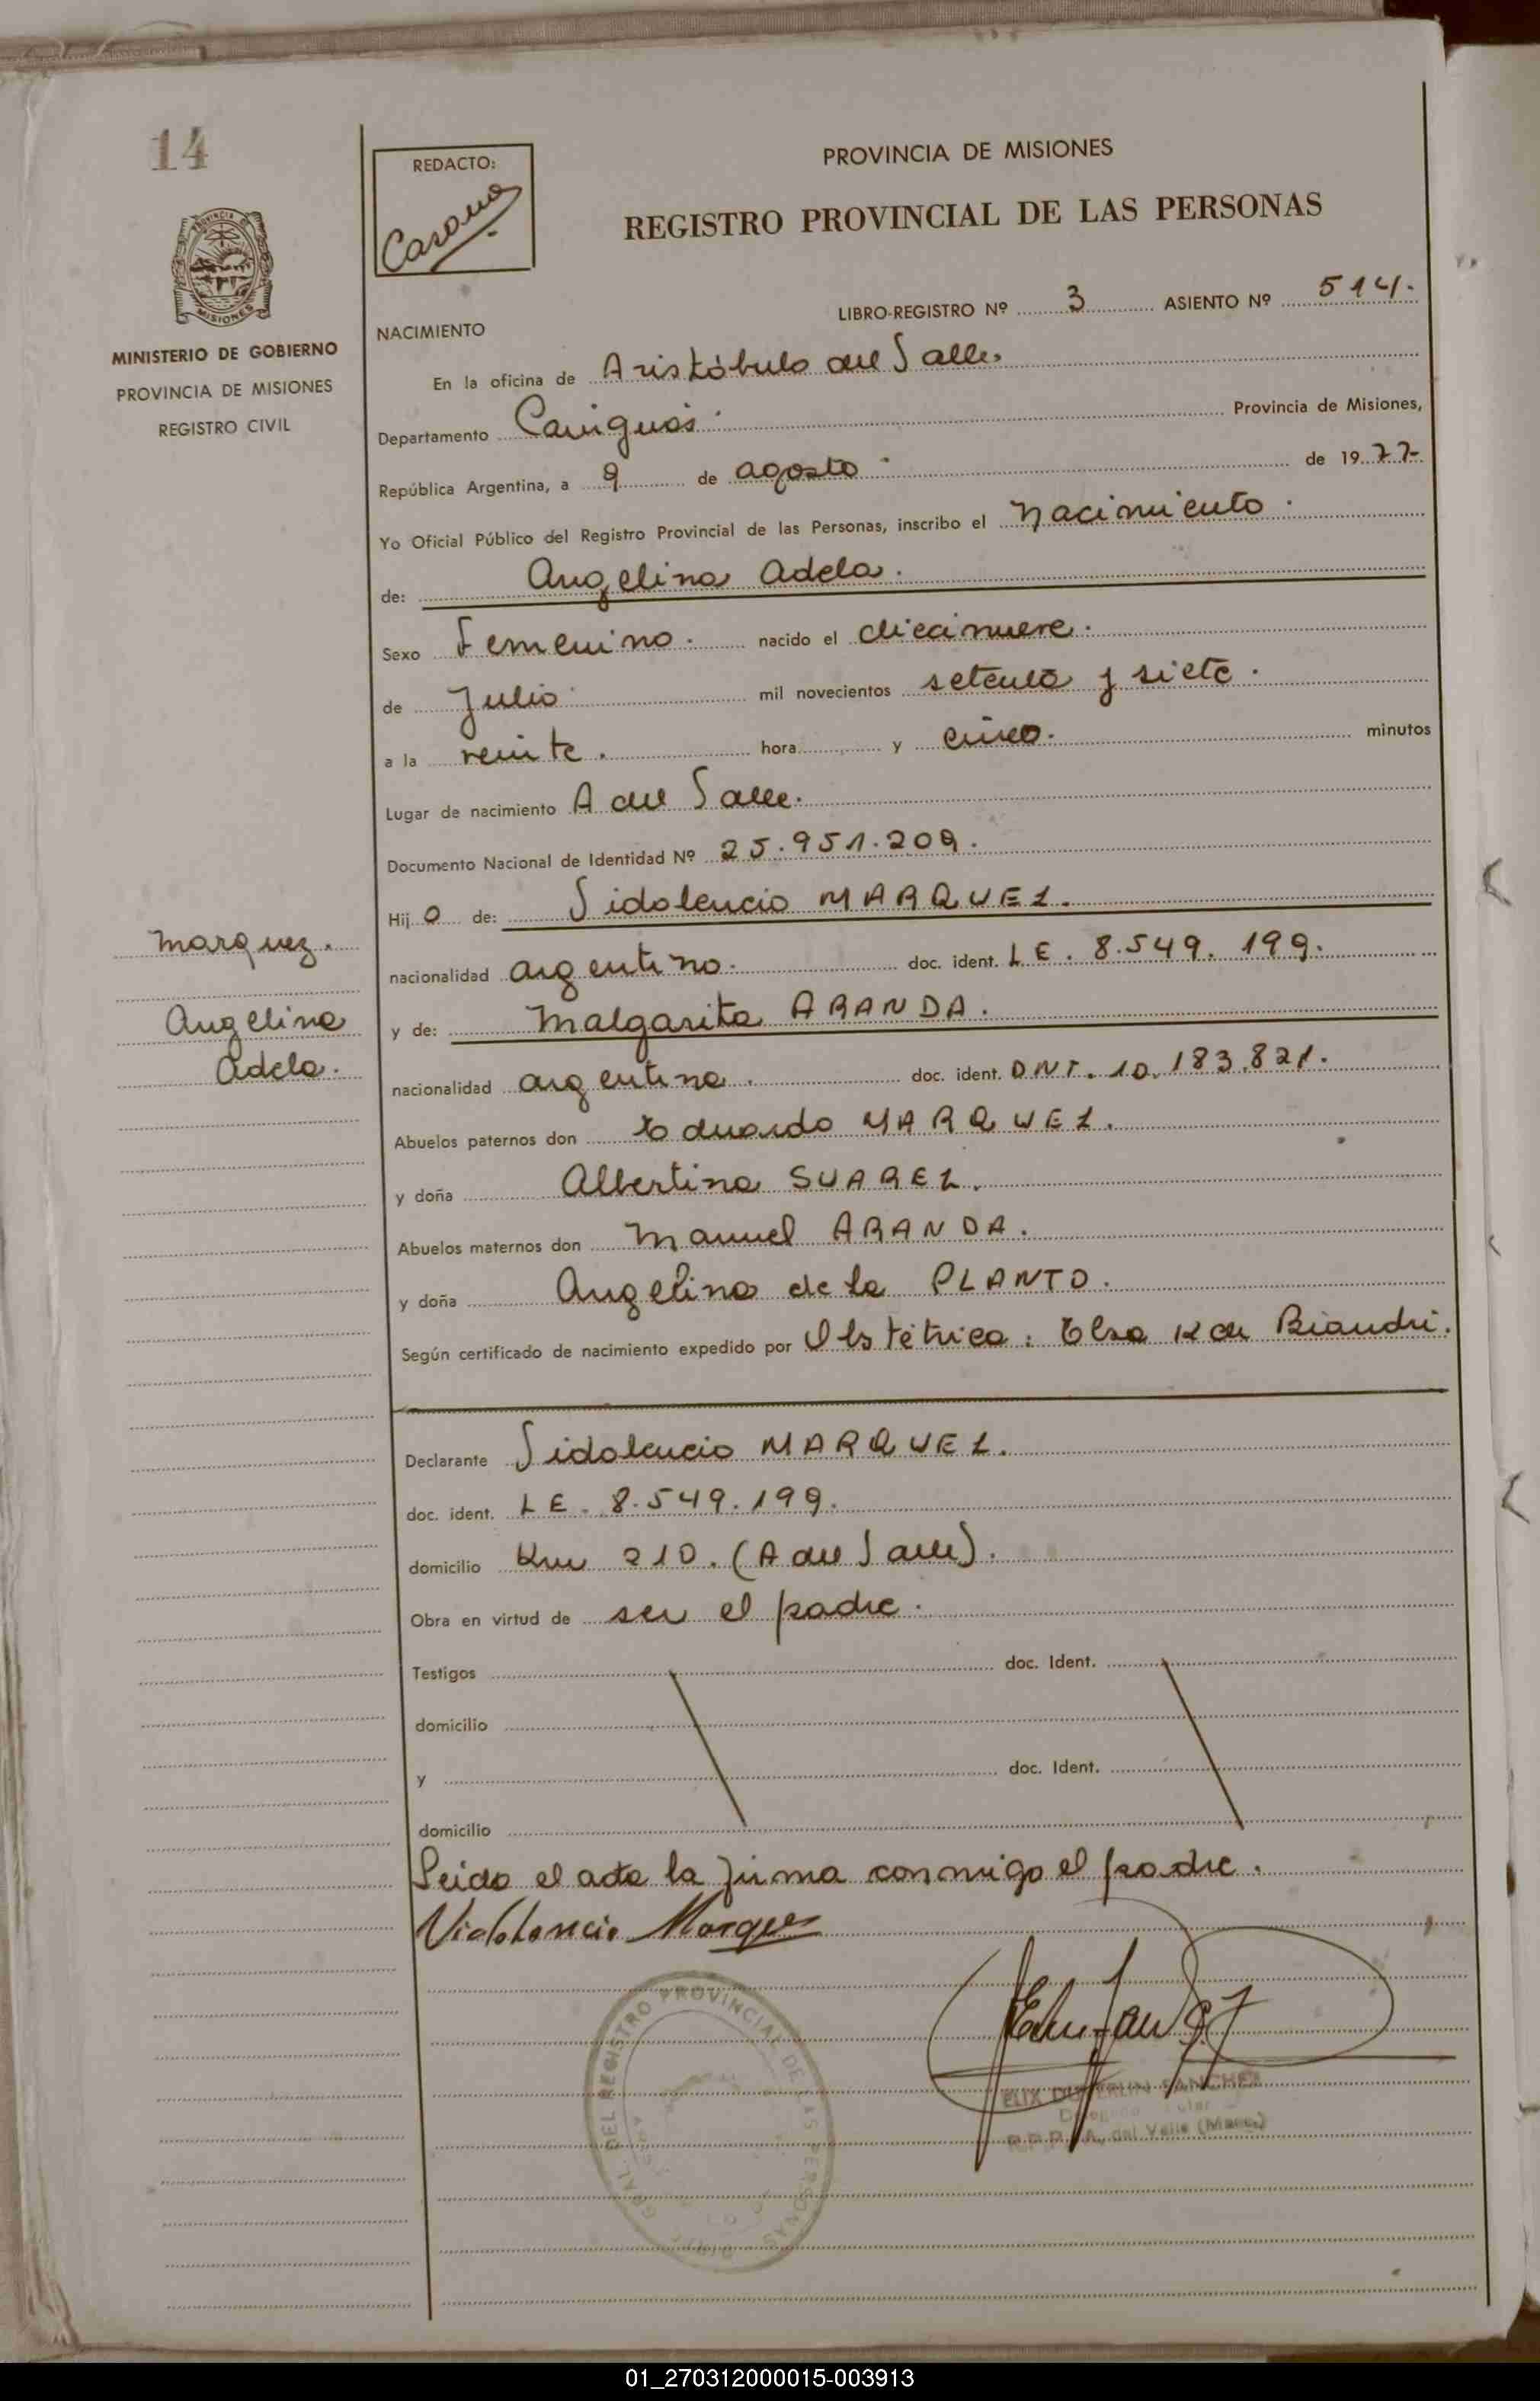 14
REDACTO:
PROVINCIA DE MISIONES
REGISTRO PROVINCIAL DE LAS PERSONAS
MINISTERIO DE GOBIERNO
PROVINCIA DE MISIONES
REGISTRO CIVIL
LIBRO-REGISTRO Nº 3 ASIENTO Nº 514.
NACIMIENTO
En la oficina de Aristóbulo del Valle.
Departamento Cainguás. Provincia de Misiones,
República Argentina, a 9 de agosto. de 1977-
Yo Oficial Público del Registro Provincial de las Personas, inscribo el Nacimiento.
de: Angelina Adela.
Sexo Femenino. nacido el diecinueve.
de Julio. mil novecientos setenta y siete.
a la veinte. hora y cinco. minutos
Lugar de nacimiento A del Valle.
Documento Nacional de Identidad Nº 25.951.209.
Hija de: Vidolencio MARQUEZ.
nacionalidad argentino. doc. ident. LE. 8.549.199.
y de: Malgarita ARANDA.
nacionalidad argentina. doc. ident. DNI. 10.183.821.
Marquez.
Angelina
Adela.
Abuelos paternos don Eduardo MARQUEZ.
y doña Albertina SUAREZ.
Abuelos maternos don Manuel ARANDA.
y doña Angelina de la PLANTO.
Según certificado de nacimiento expedido por Obstétrica: Elsa K de Biandri.
Declarante Vidolencio MARQUEZ.
doc. ident. LE. 8.549.199.
domicilio Km 210. (A del Valle).
Obra en virtud de ser el padre.
Testigos doc. Ident.
domicilio
y doc. Ident.
domicilio
Leida el acta la firma conmigo el padre.
Marquez
GRAL. DEL REGISTRO PROVINCIAL DE LAS PERSONAS
SANCHEZ
A. del Valle (Mnes.)
PROVINCIA DE
MISIONES
01_270312000015-003913